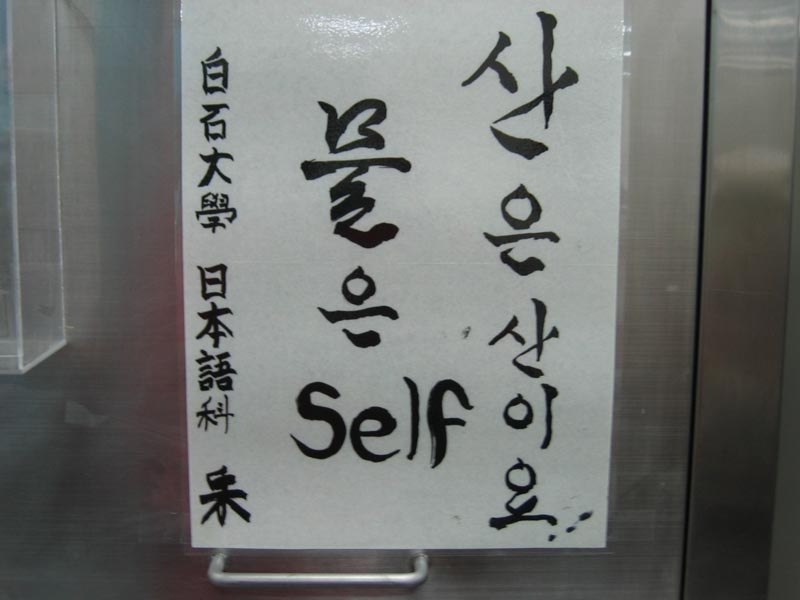 산은산이요
물은
Self
白石大學 日本語科